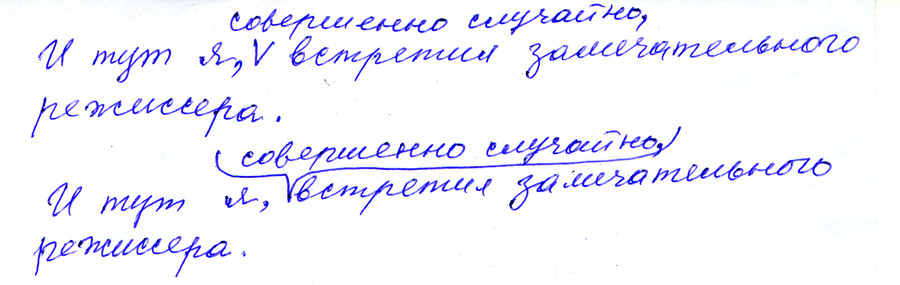 совершенно случайно,
И тут я, V встретил замечательного
режиссера.
совершенно случайно,
И тут я, встретил замечательного
режиссера.